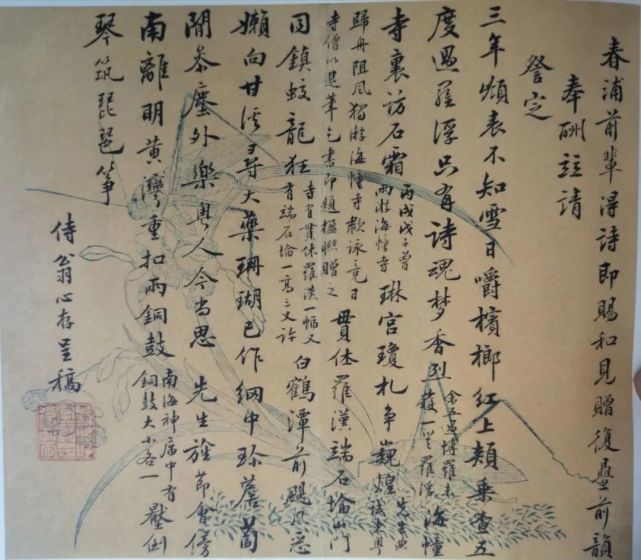 春浦前輩得詩即賜和見贈復疊前韻
奉酬敬請
詧定
三年頫表不知雪日嚼檳榔紅上頰乘查五
度過羅浮只有詩魂夢香到余五過博羅未獲一至羅浮海幢
寺裏訪石霜丙戌戊子曾兩游海幢寺琳宮瓊札爭巍煌先生典試來粵
歸舟阻風獨游海幢寺歎詠竟日寺僧以退筆乞書即題楹聯贈之貫休羅漢端石塔山門
同鎮蛟龍狂寺有貫休羅漢一幅又有端石塔一高三丈許白鶴潭前颶風惡
嬾向甘谿尋大藥珊瑚已作網中珍薝蔔
閒參塵外樂粵人今尚思 先生旌節會傍
南離明黃灣重扣兩銅鼓南海神廟中有銅鼓大小各一壓倒
琴筑琵琶箏
侍翁心存呈稿